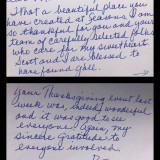 What a beautiful place you
have created at Seasons. I am
so thankful for you and your
team of carefully selected folks
who care for my sweetheart
Scott and I are blessed to
have found y'all.
Your Thanksgiving event last
week was, indeed wonderful
and it was good to see
everyone. Again, my
sincere gratitude to
everyone involved.